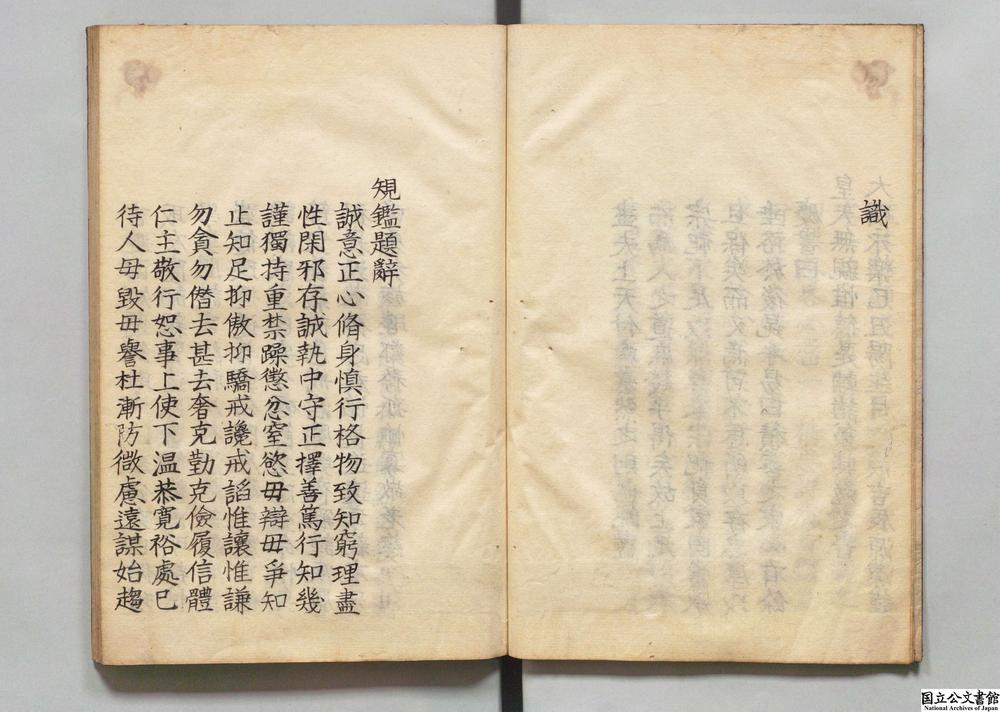 識
規鑑題辭
誠意正心脩身慎行格物致知窮理盡
性閑邪存誠執中守正擇善篤行知幾
謹獨持重禁躁懲忿窒慾毋辯毋爭知
止知足抑傲抑驕戒讒戒謟惟讓惟謙
勿貪勿僭去甚去奢克勤克儉履信體
仁主敬行恕事上使下温恭寬裕處已
待人毋毀毋譽杜漸防微慮遠謀始趨
国立公文書館
National Archives of Japan